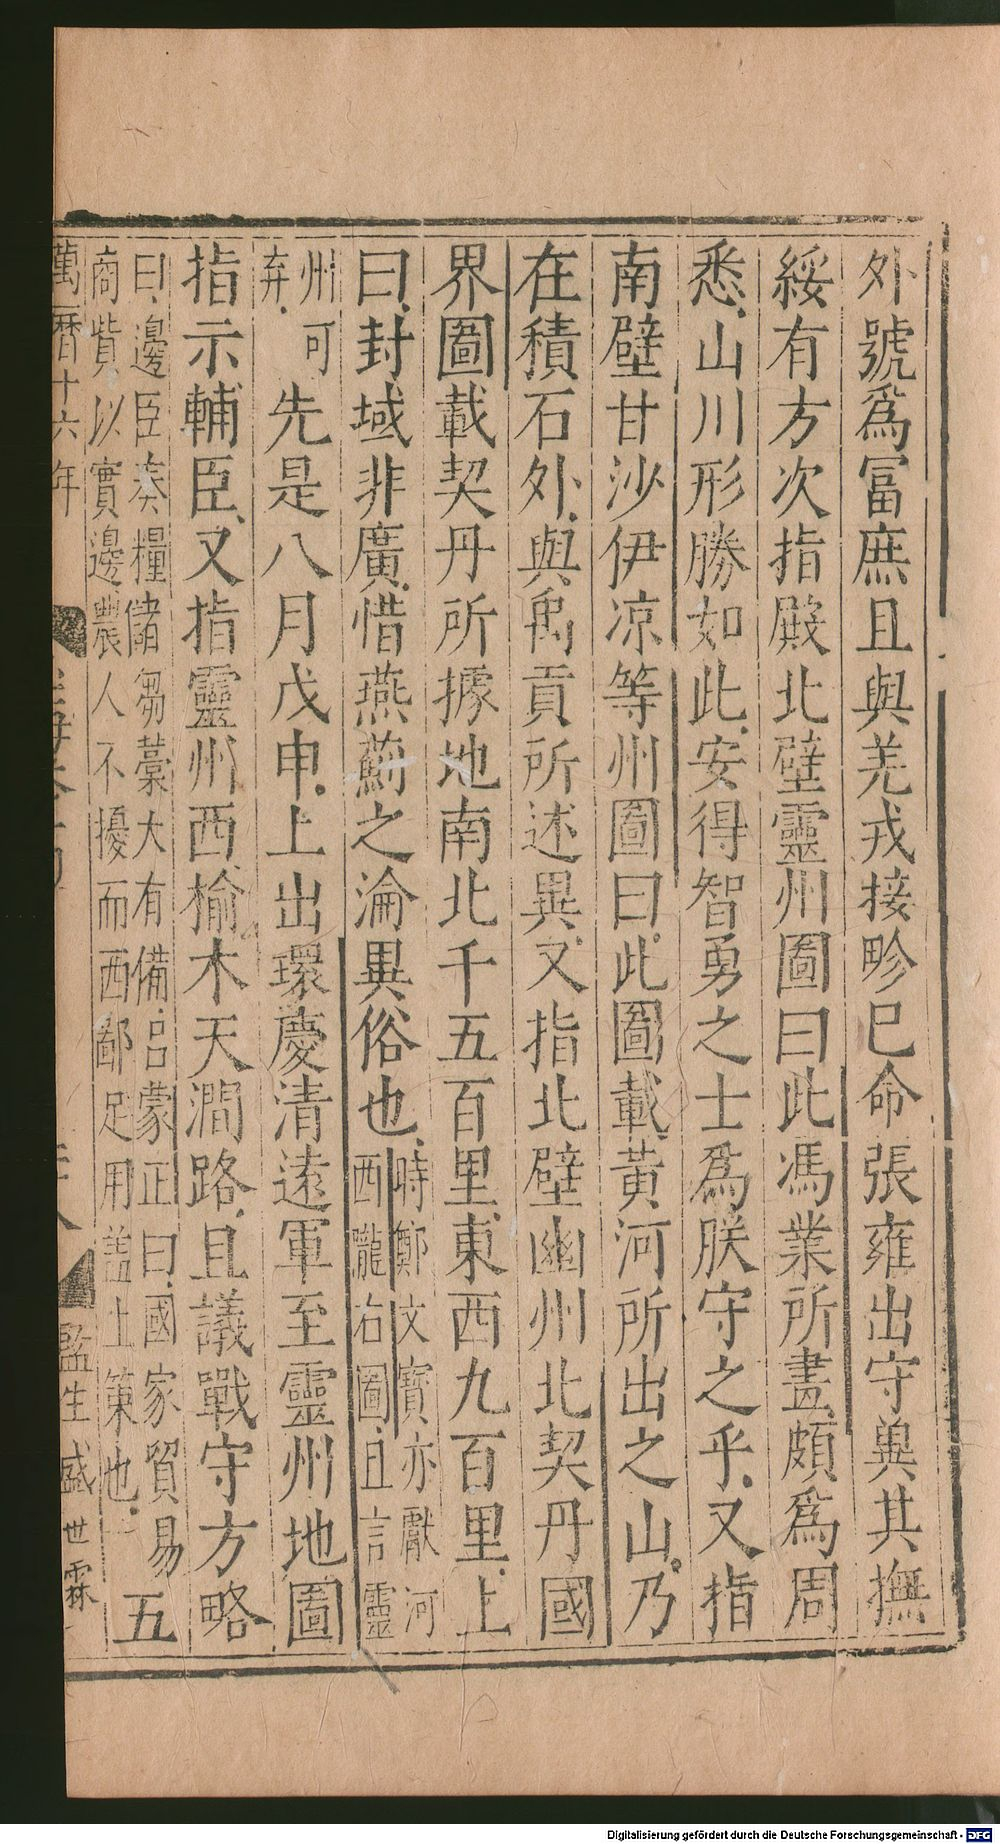 外號爲冨庶且與羌戎接畛已命張雍出守兾其撫
綏有方次指殿北壁靈州圖曰此馮業所畫頗爲周
悉山川形勝如此安得智勇之士爲朕守之乎又指
南壁甘沙伊凉等州圖曰此圖載黃河所出之山乃
在積石外與禹貢所述異又指北壁幽州北契丹國
界圖載契丹所據地南北千五百里東西九百里上
曰封域非廣惜燕薊之淪異俗也時鄭文寶亦獻河
西隴右圖且言靈
州可
弃先是八月戊申上出環慶清遠軍至靈州地圖
指示輔臣又指靈州西榆木天澗路且議戰守方略
曰邊臣奏糧儲芻藁大有備呂蒙正曰國家貿易
商貲以實邊農人不擾而西鄙足用盖上策也五
萬曆十六年
監生盛世霖
Digitalisierung gefördert durch die Deutsche Forschungsgemeinschaft - DFG